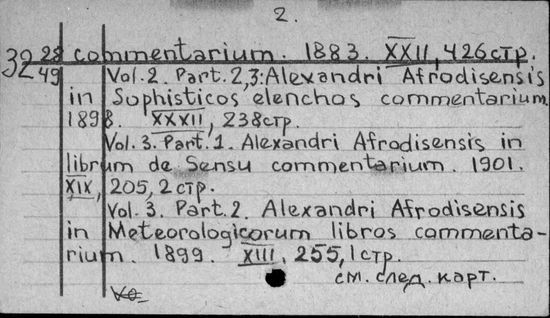 2.
3928 commentarium. 1883. XXII, 426 стр.
3249 Vol. 2. Part. 2,3: Alexandri Afrodisensis
in Sophisticos elenchos commentarium.
1898. XXXII, 238 стр.
Vol. 3. Part. 1. Alexandri Afrodisensis in
librum de Sensu commentarium. 1901.
XIX, 205, 2 стр.
Vol. 3. Part. 2. Alexandri Afrodisensis
in Meteorologicorum libros commenta-
rium. 1899. XIII, 255, 1 стр.
см. след. карт.